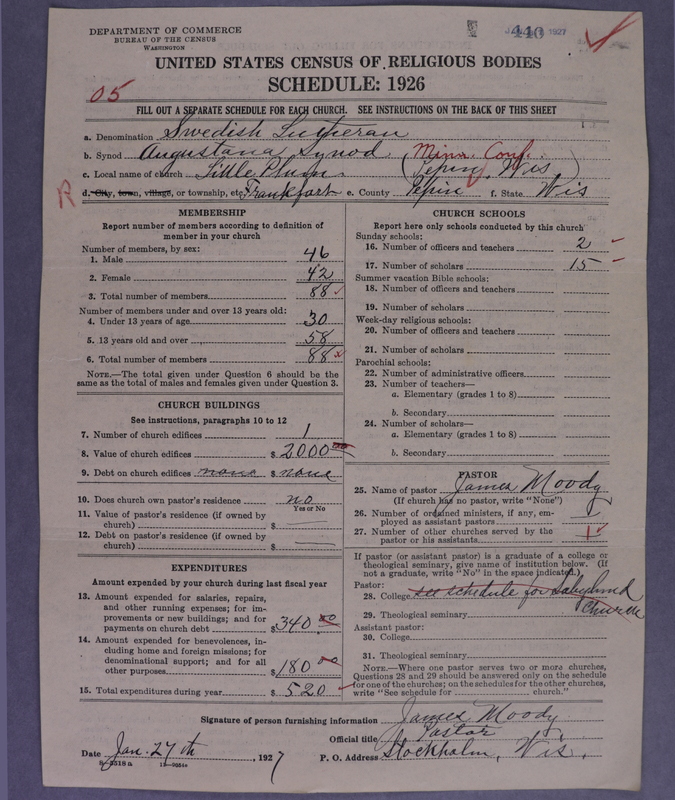 DEPARTMENT OF COMMERCE
BUREAU OF THE CENSUS
WASHINGTON
440
1927
UNITED STATES CENSUS OF RELIGIOUS BODIES
SCHEDULE: 1926
05
FILL OUT A SEPARATE SCHEDULE FOR EACH CHURCH. SEE INSTRUCTIONS ON THE BACK OF THIS SHEET
a. Denomination Swedish Lutheran
b. Synod Augustana Synod Minn. Conf.
c. Local name of church Little Plum (Pepin, Wis)
R d. City, town, village, or township, etc. Frankfort e. County Pepin f. State Wis
MEMBERSHIP
Report number of members according to definition of member in your church
Number of members, by sex:
1. Male 46
2. Female 42
3. Total number of members 88
Number of members under and over 13 years old:
4. Under 13 years of age 30
5. 13 years old and over 58
6. Total number of members 88
NOTE.—The total given under Question 6 should be the
same as the total of males and females given under Question 3.
CHURCH BUILDINGS
See instructions, paragraphs 10 to 12
7. Number of church edifices 1
8. Value of church edifices $ 2000 00
9. Debt on church edifices none $ none
10. Does church own pastor's residence no
Yes or No
11. Value of pastor's residence (if owned by
church) $
12. Debt on pastor's residence (if owned by
church) $
EXPENDITURES
Amount expended by your church during last fiscal year
13. Amount expended for salaries, repairs,
and other running expenses; for im-
provements or new buildings; and for
payments on church debt $ 340 00
14. Amount expended for benevolences, in-
cluding home and foreign missions; for
denominational support; and for all
other purposes $ 180 00
15. Total expenditures during year $ 520
CHURCH SCHOOLS
Report here only schools conducted by this church
Sunday schools:
16. Number of officers and teachers 2
17. Number of scholars 15
Summer vacation Bible schools:
18. Number of officers and teachers
19. Number of scholars
Week-day religious schools:
20. Number of officers and teachers
21. Number of scholars
Parochial schools:
22. Number of administrative officers
23. Number of teachers—
a. Elementary (grades 1 to 8)
b. Secondary
24. Number of scholars—
a. Elementary (grades 1 to 8)
b. Secondary
PASTOR
25. Name of pastor James Moody
(If church has no pastor, write "None")
26. Number of ordained ministers, if any, em-
ployed as assistant pastors
27. Number of other churches served by the
pastor or his assistants 1
If pastor (or assistant pastor) is a graduate of a college or
theological seminary, give name of institution below. (If
not a graduate, write "No" in the space indicated.)
Pastor:
28. College see schedule for
Church
29. Theological seminary
Assistant pastor:
30. College
31. Theological seminary
NOTE.—Where one pastor serves two or more churches,
Questions 28 and 29 should be answered only on the schedule
for one of the churches; on the schedules for the other churches,
write "See schedule for church."
Signature of person furnishing information James Moody
Official title Pastor
Date Jan. 27th, 1927 P. O. Address Stockholm, Wis.
8-5518 a